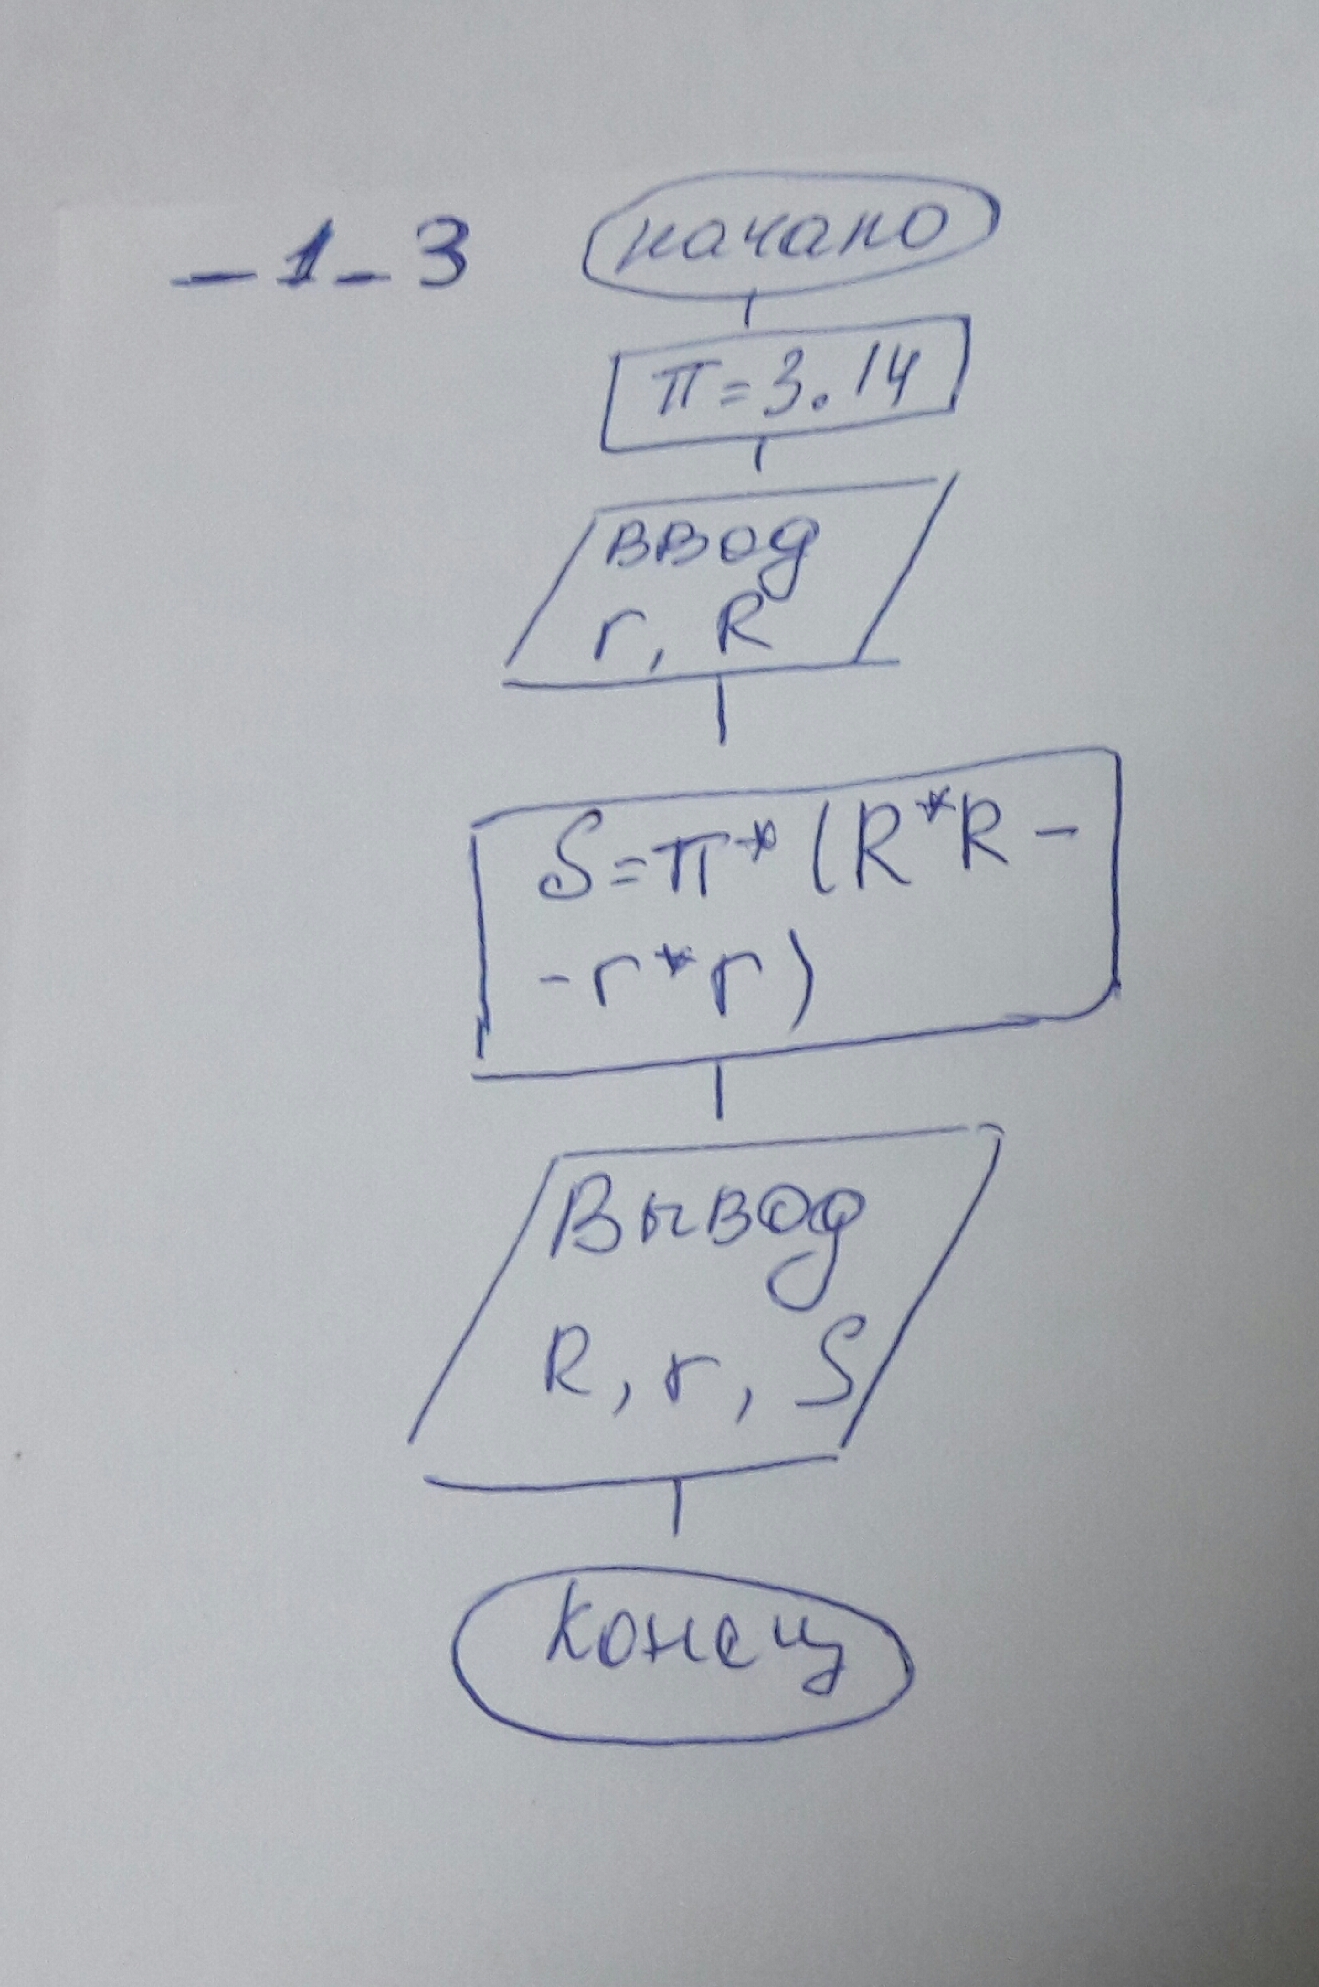 _1_3
начало
π=3.14
ввод
r, R
S=π*(R*R-
-r*r)
Вывод
R, r, S
конец